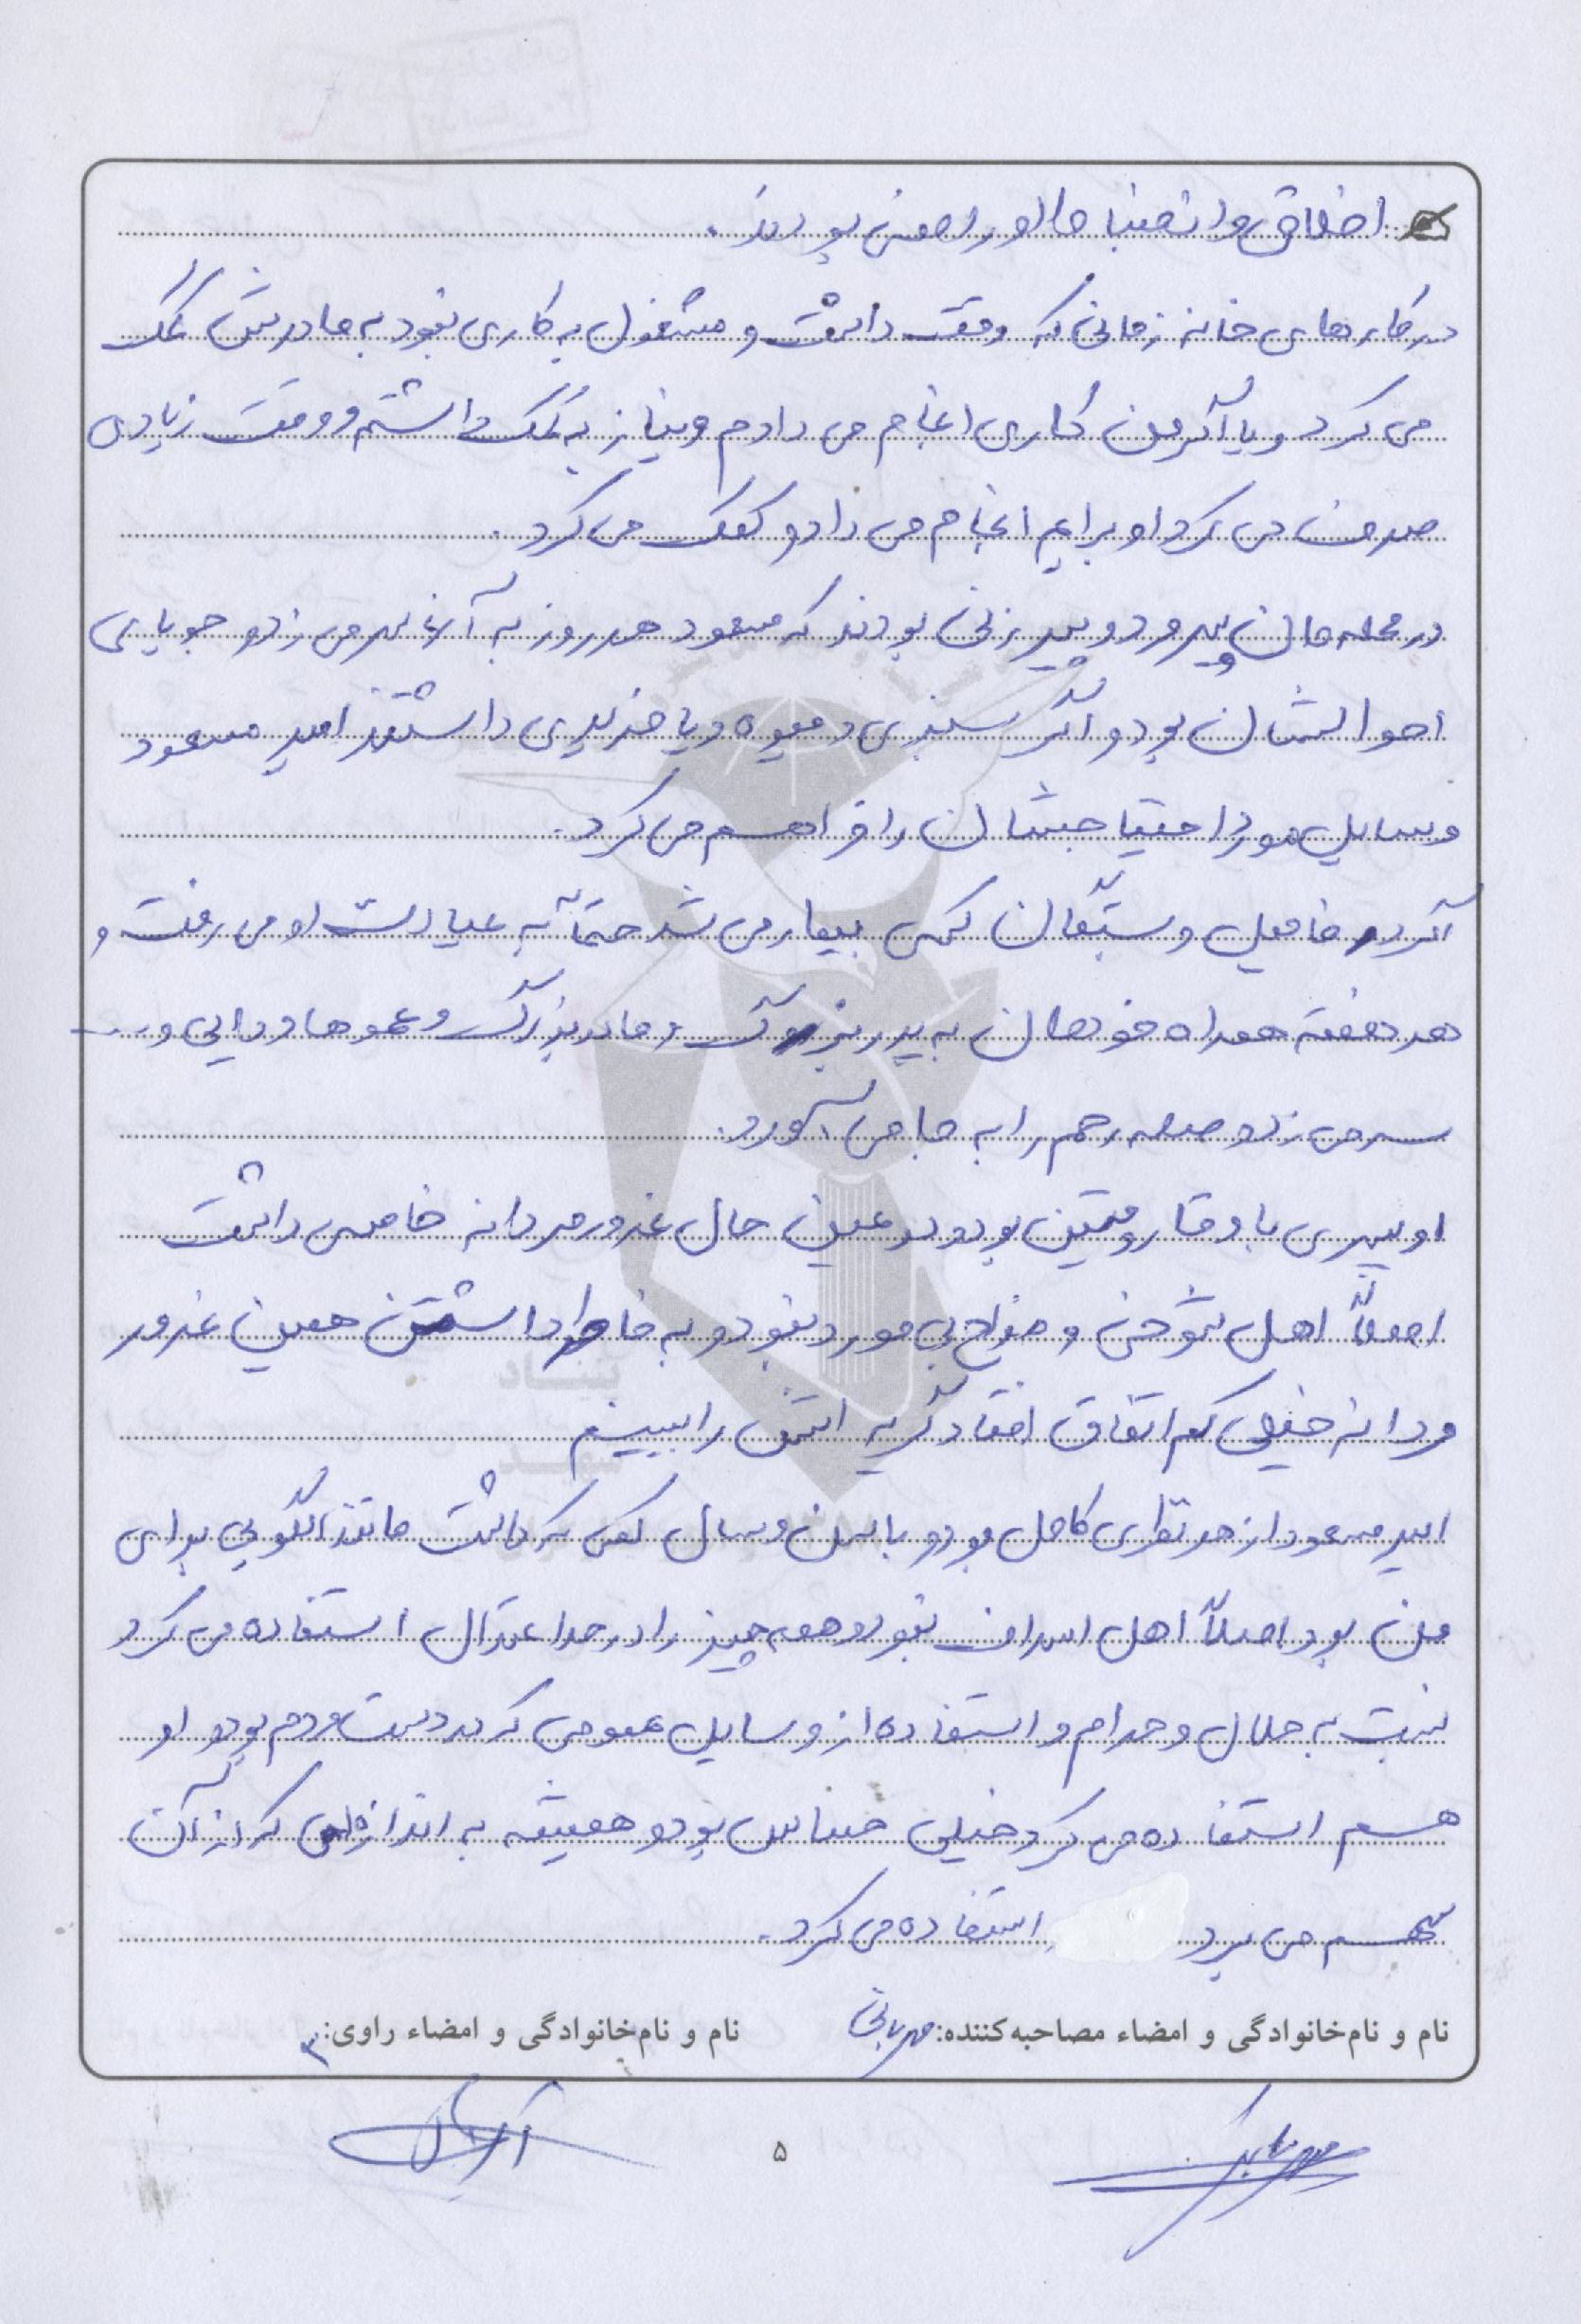 اخلاق و انضباط او راضی بودند.
در کارهای خانه زمانی که وقت داشت و مشغول به کاری نبود به مادرش کمک
می کرد و یا اگر من کاری انجام می دادم و نیاز به کمک داشتم و وقت زیادی
صرف می کرد او برایم انجام می داد و کمک می کرد.
در محله مان پیرمرد و پیرزنی بودند که مسعود هر روز به آنها سر می زد و جویای
احوالشان بود و اگر سبزی و میوه و یا خریدی داشتند امیر مسعود
وسایل مورد احتیاجشان را فراهم می کرد.
اگر در فامیل و بستگان کسی بیمار می شد حتماً به عیادت او می رفت و
هر هفته همراه خودمان به پدربزرگ و مادربزرگ و عموها و دایی و ...
سر می زد و صله رحم را به جا می آورد.
او پسری با وقار و متین بود و در عین حال غرور مردانه خاصی داشت
اصلاً اهل شوخی و مزاح بی مورد نبود و به خاطر داشتن همین غرور
مردانه خیلی کم اتفاق افتاد گریه اش را ببینم
امیر مسعود از هر نظری کامل بود و با سن و سال کمی که داشت مانند الگویی برای
من بود اصلاً اهل اسراف نبود و همه چیز را در حد اعتدال استفاده می کرد
نسبت به حلال و حرام و استفاده از وسایل عمومی که در دست مردم بود و او
هم استفاده می کرد خیلی حساس بود و همیشه به اندازه ای که از آن
سهم می برد استفاده می کرد.
نام و نام‌خانوادگی و امضاء مصاحبه‌کننده: مهربانی نام و نام‌خانوادگی و امضاء راوی:
۵